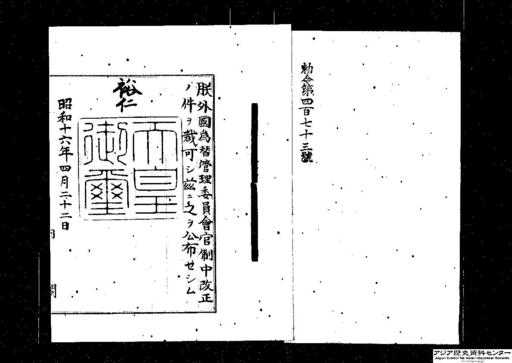 勅令第四百七十三號
朕外國為替管理委員會官制中改正
ノ件ヲ裁可シ茲ニ之ヲ公布セシム
裕仁
天皇
御璽
昭和十六年四月二十二日
内閣
アジア歴史資料センター
Japan Center for Asian Historical Records